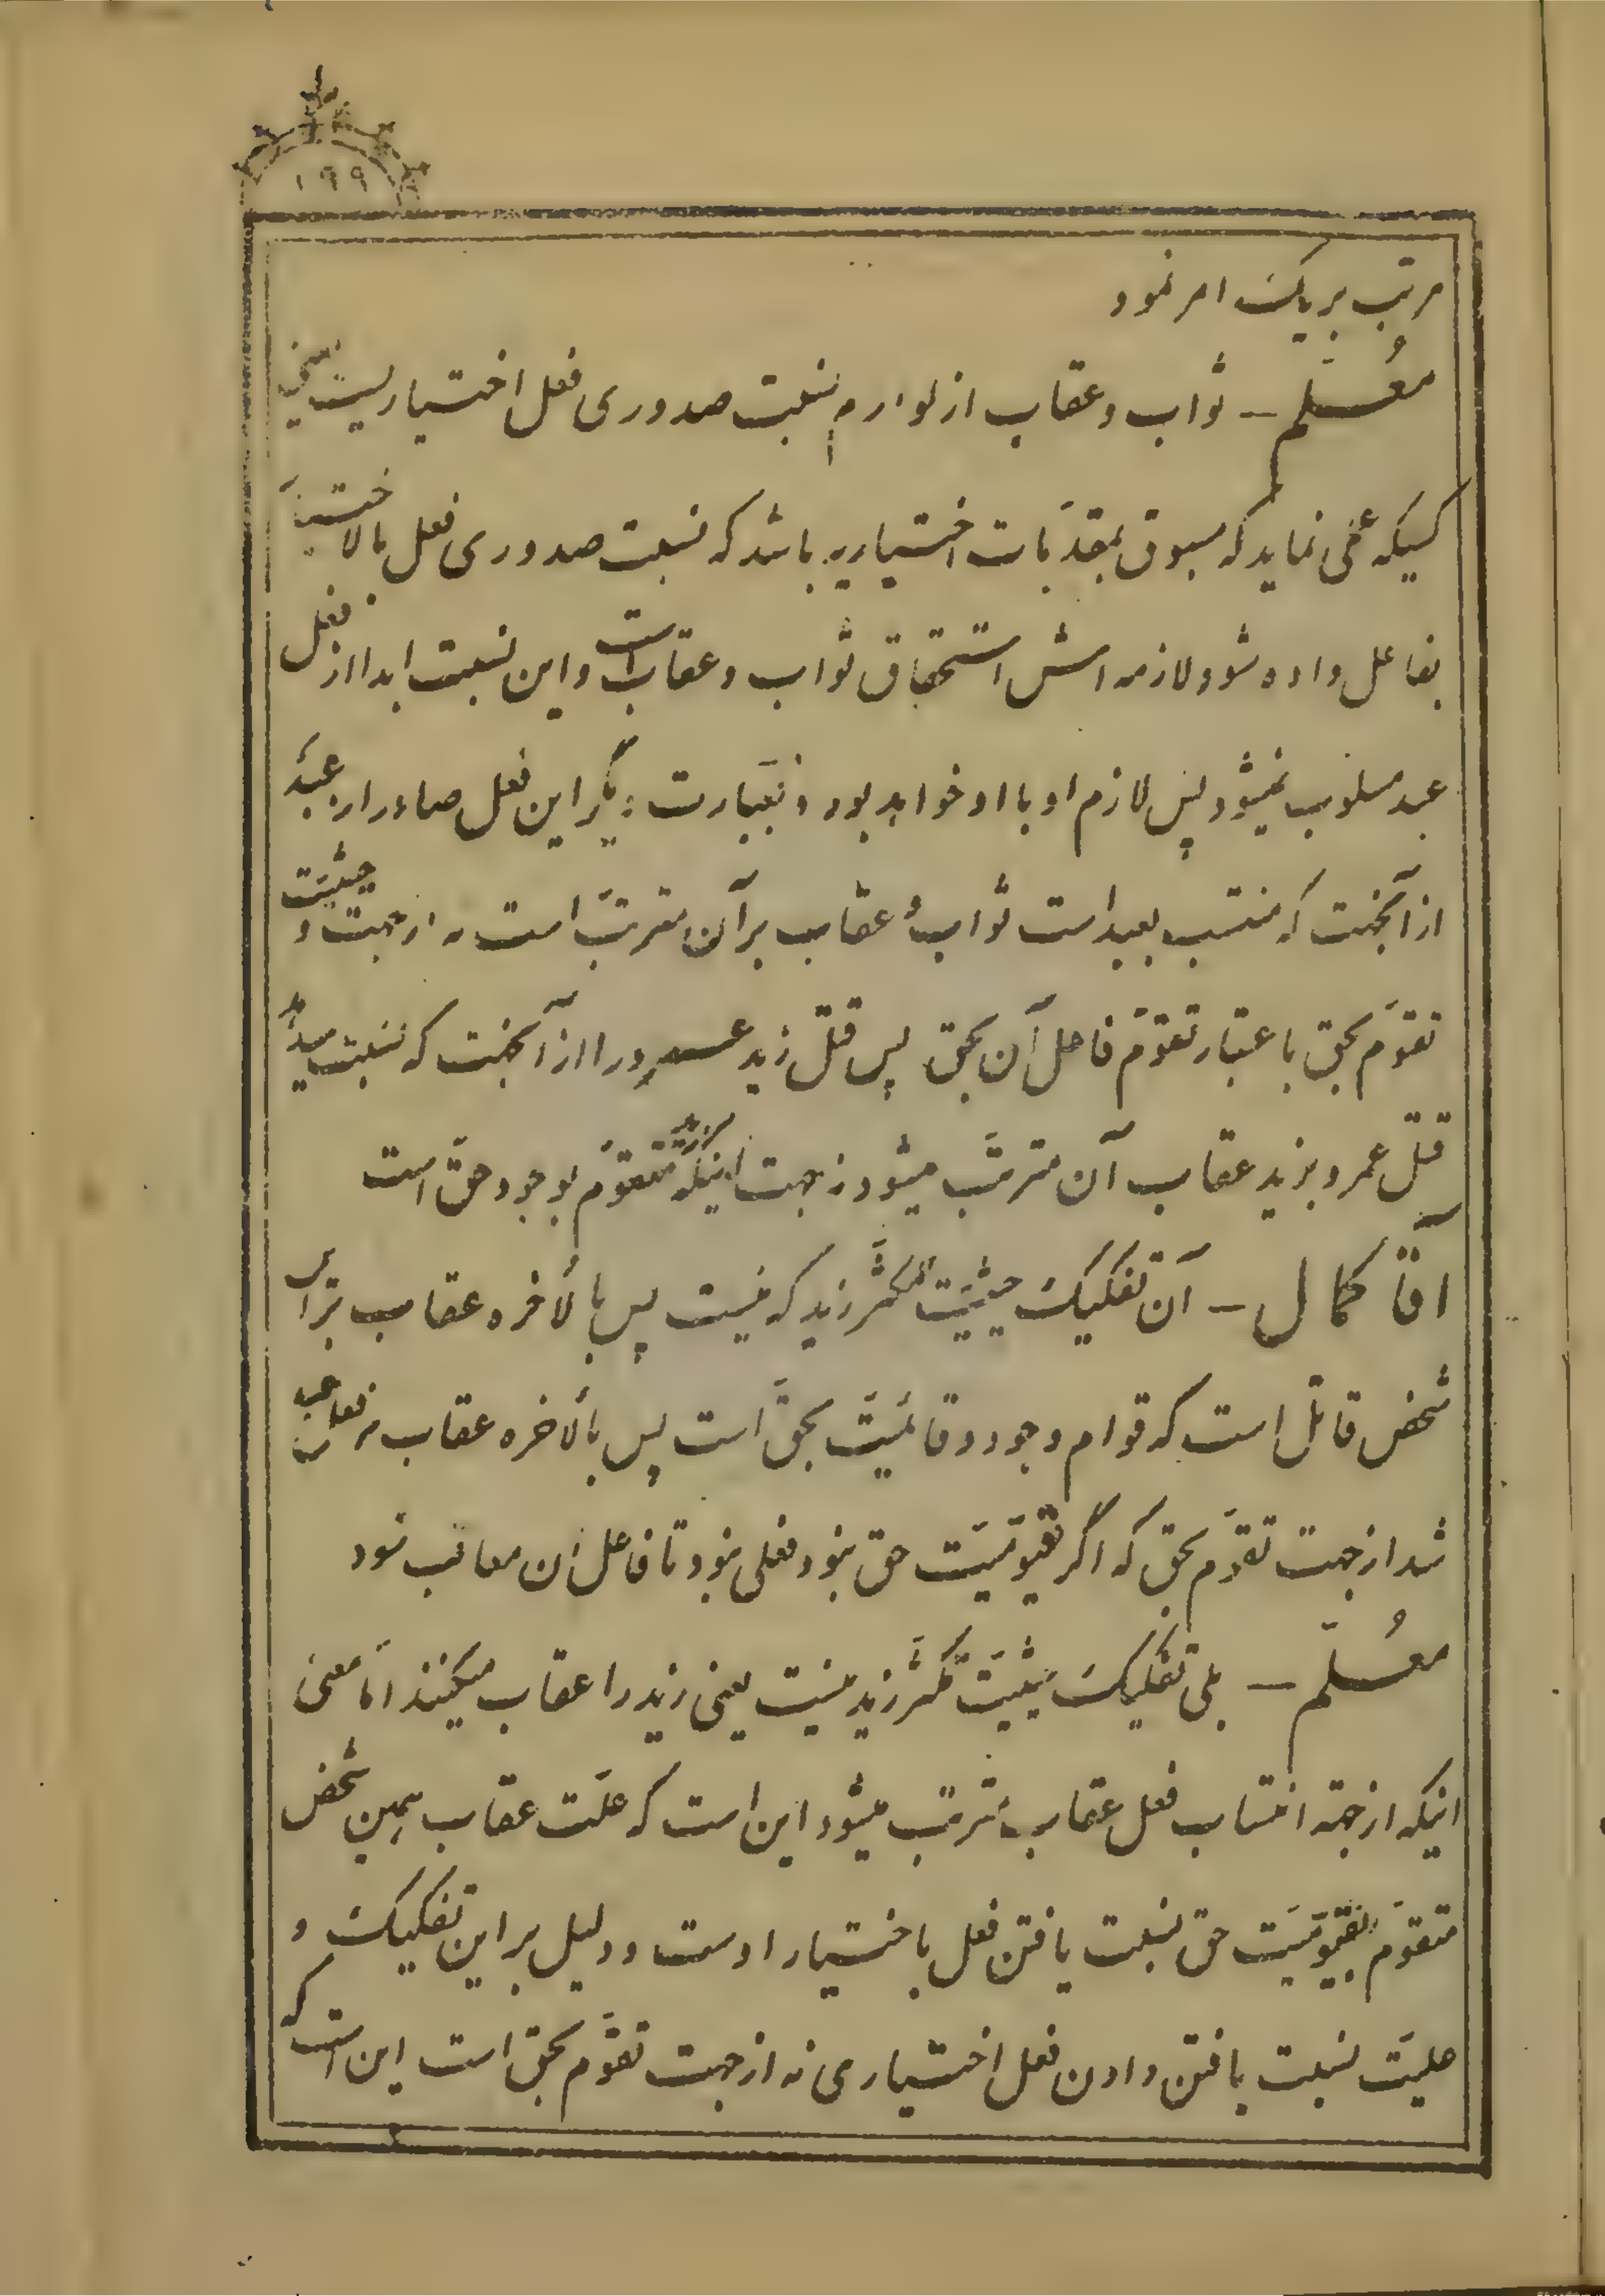 ۱۹۹
مرتب بر یک امر نمود
معُلّم — ثواب و عقاب از لوازم نسبت صدوری فعل اختیاریست یعنی
کسیکه عملی نماید که مسبوق بمقدّمات اختیاریه باشد که نسبت صدوری فعل بالاختیار
بفاعل داده شود لازمه اش استحقاق ثواب و عقاب است و این نسبت ابدا از فعل
عبد مسلوب نمیشود پس لازم او با او خواهد بود و بعبارت دیگر این فعل صادر از عبد
از آنجهت که منتسب بعبد است ثواب و عقاب بر آن مترتّب است نه از جهت و حیثیّت
تقوّم بحق باعتبار تقوّم فاعل آن بحق پس قتل زید عمرو را از آنجهت که نسبت میدهد
قتل عمرو بزید عقاب آن مترتّب میشود نه جهت اینکه زید متقوّم بوجود حقّ است
آقا کمال — آن تفکیک حیثیّت مکثّر زید که نیست پس بالاخره عقاب برای
شخص قاتل است که قوام وجود و قائمیّت بحقّ است پس بالاخره عقاب
شد از جهت تقوّم بحق که اگر قیّومیّت حق نبود فعلی نبود تا فاعل آن معاقب شود
معُلّم — بلی تفکیک حیثیّت مکثّر زید نیست یعنی زید را عقاب میکنند امّا معنی
اینکه از جهة انتساب فعل عقاب مترتّب میشود این است که علّت عقاب همین شخص
متقوّم بقیّومیّت حق نسبت یافتن فعل باختیار اوست و دلیل بر این تفکیک و
علیّت نسبت یافتن دادن فعل اختیاری نه از جهت تقوّم بحق است این است که